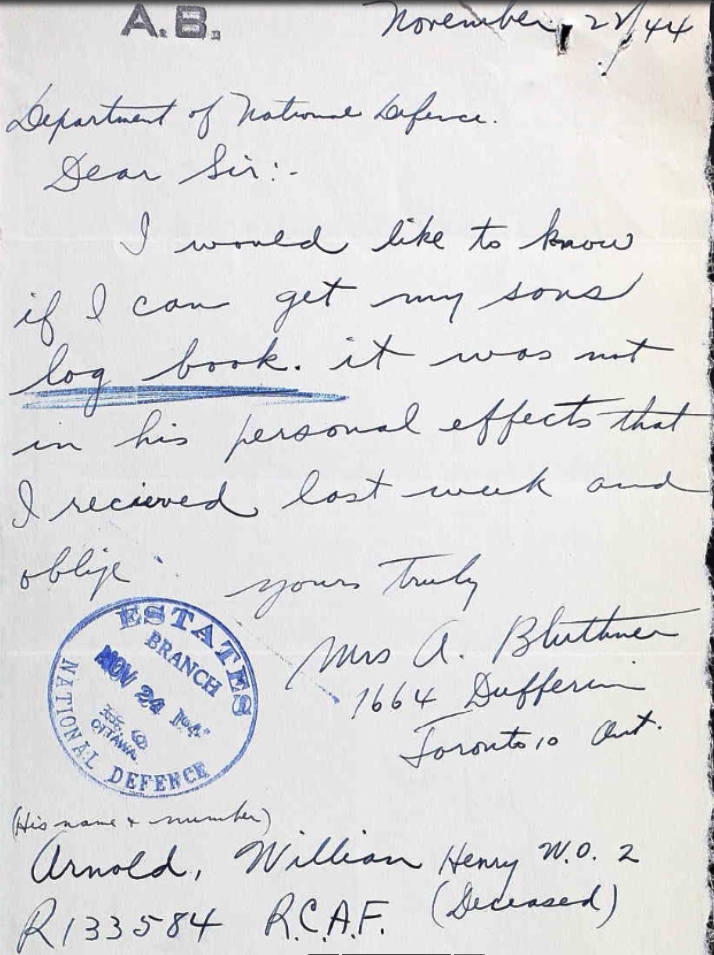 A.B.
November 22/44
Department of National Defence.
Dear Sir:-
I would like to know
if I can get my sons
log book. it was not
in his personal effects that
I recieved last week and
oblige yours truly
Mrs A. Bluthner
1664 Dufferin
Toronto 10 Ont.
ESTATES
BRANCH
NOV 24
OTTAWA
NATIONAL DEFENCE
(His name & number)
Arnold, William Henry W.O. 2
R133584 R.C.A.F. (Deceased)